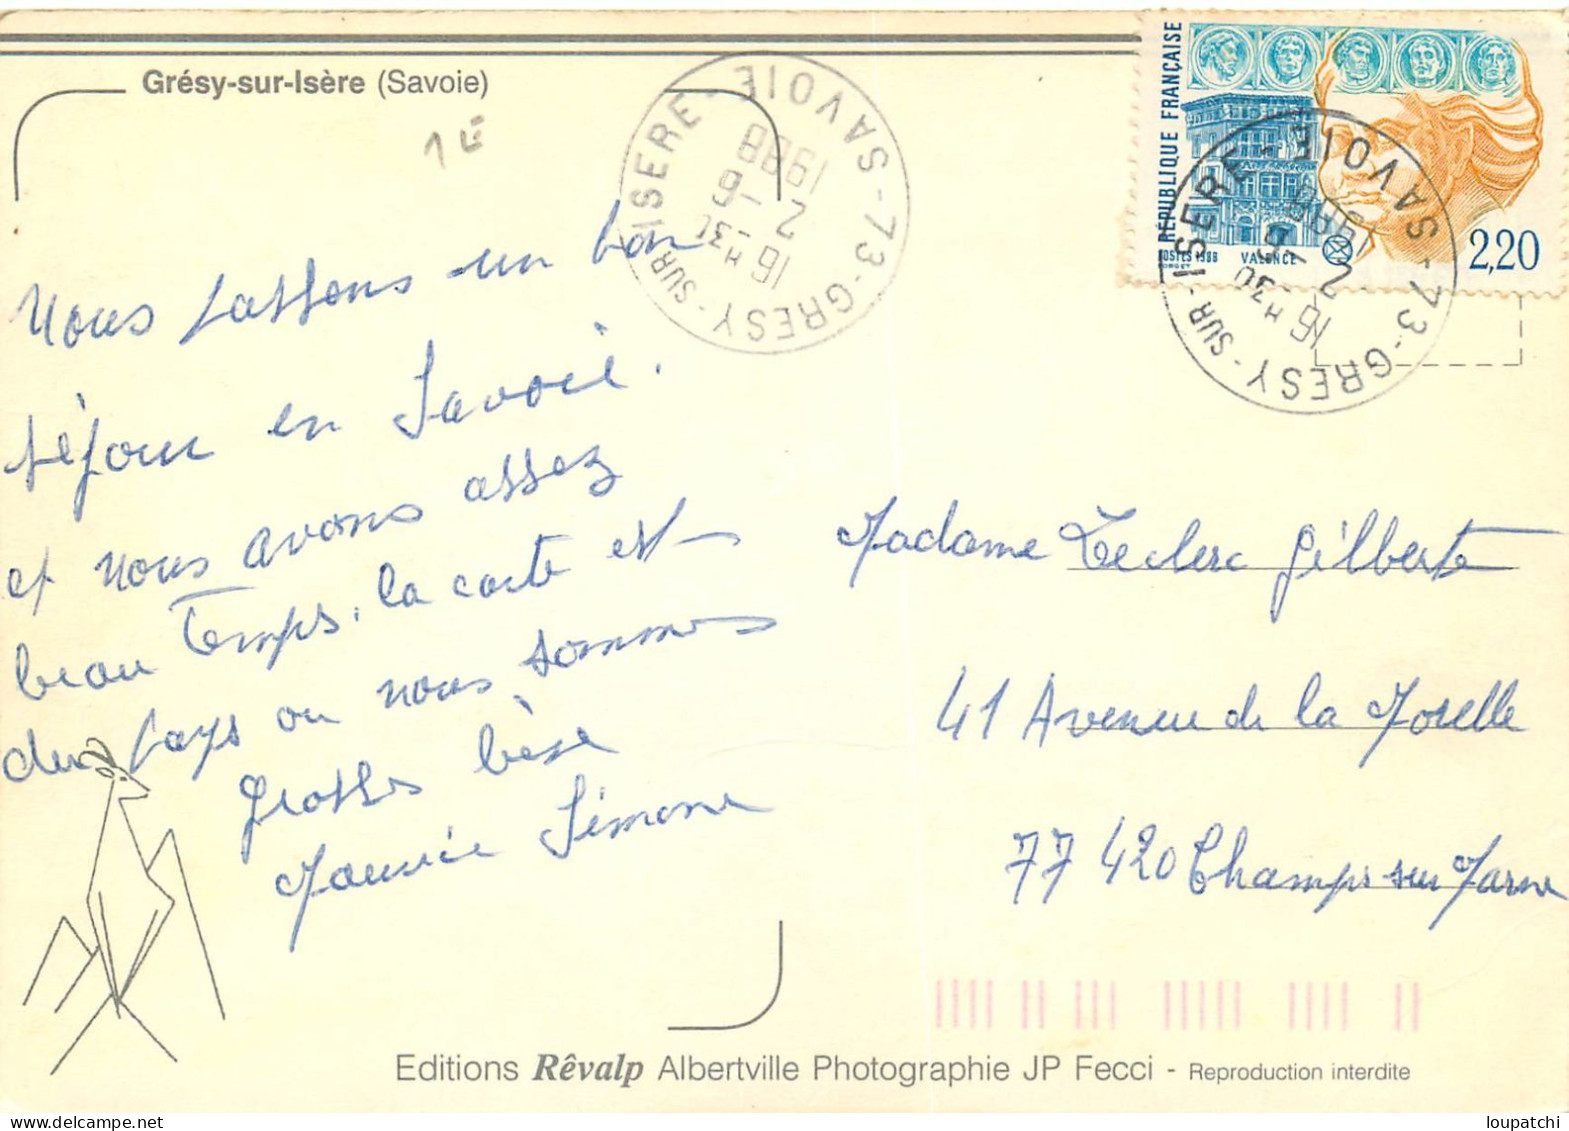 Grésy-sur-Isère (Savoie)
1 €
Nous passons un bon
séjour en Savoie.
et nous avons assez
beau Temps, la carte est
du pays ou nous sommes
Grosses bise
Maurice Simone
RÉPUBLIQUE FRANÇAISE
POSTES 1988 VALENCE
2,20
73-GRESY-SUR-ISERE-SAVOIE
16 H 30
2 -6
1988
73-GRESY-SUR-ISERE-SAVOIE
16 H 30
2 -6
1988
Madame Leclerc Gilberte
41 Avenue de la Morelle
77 420 Champs sur Marne
Editions Rêvalp Albertville Photographie JP Fecci - Reproduction interdite
loupatchi